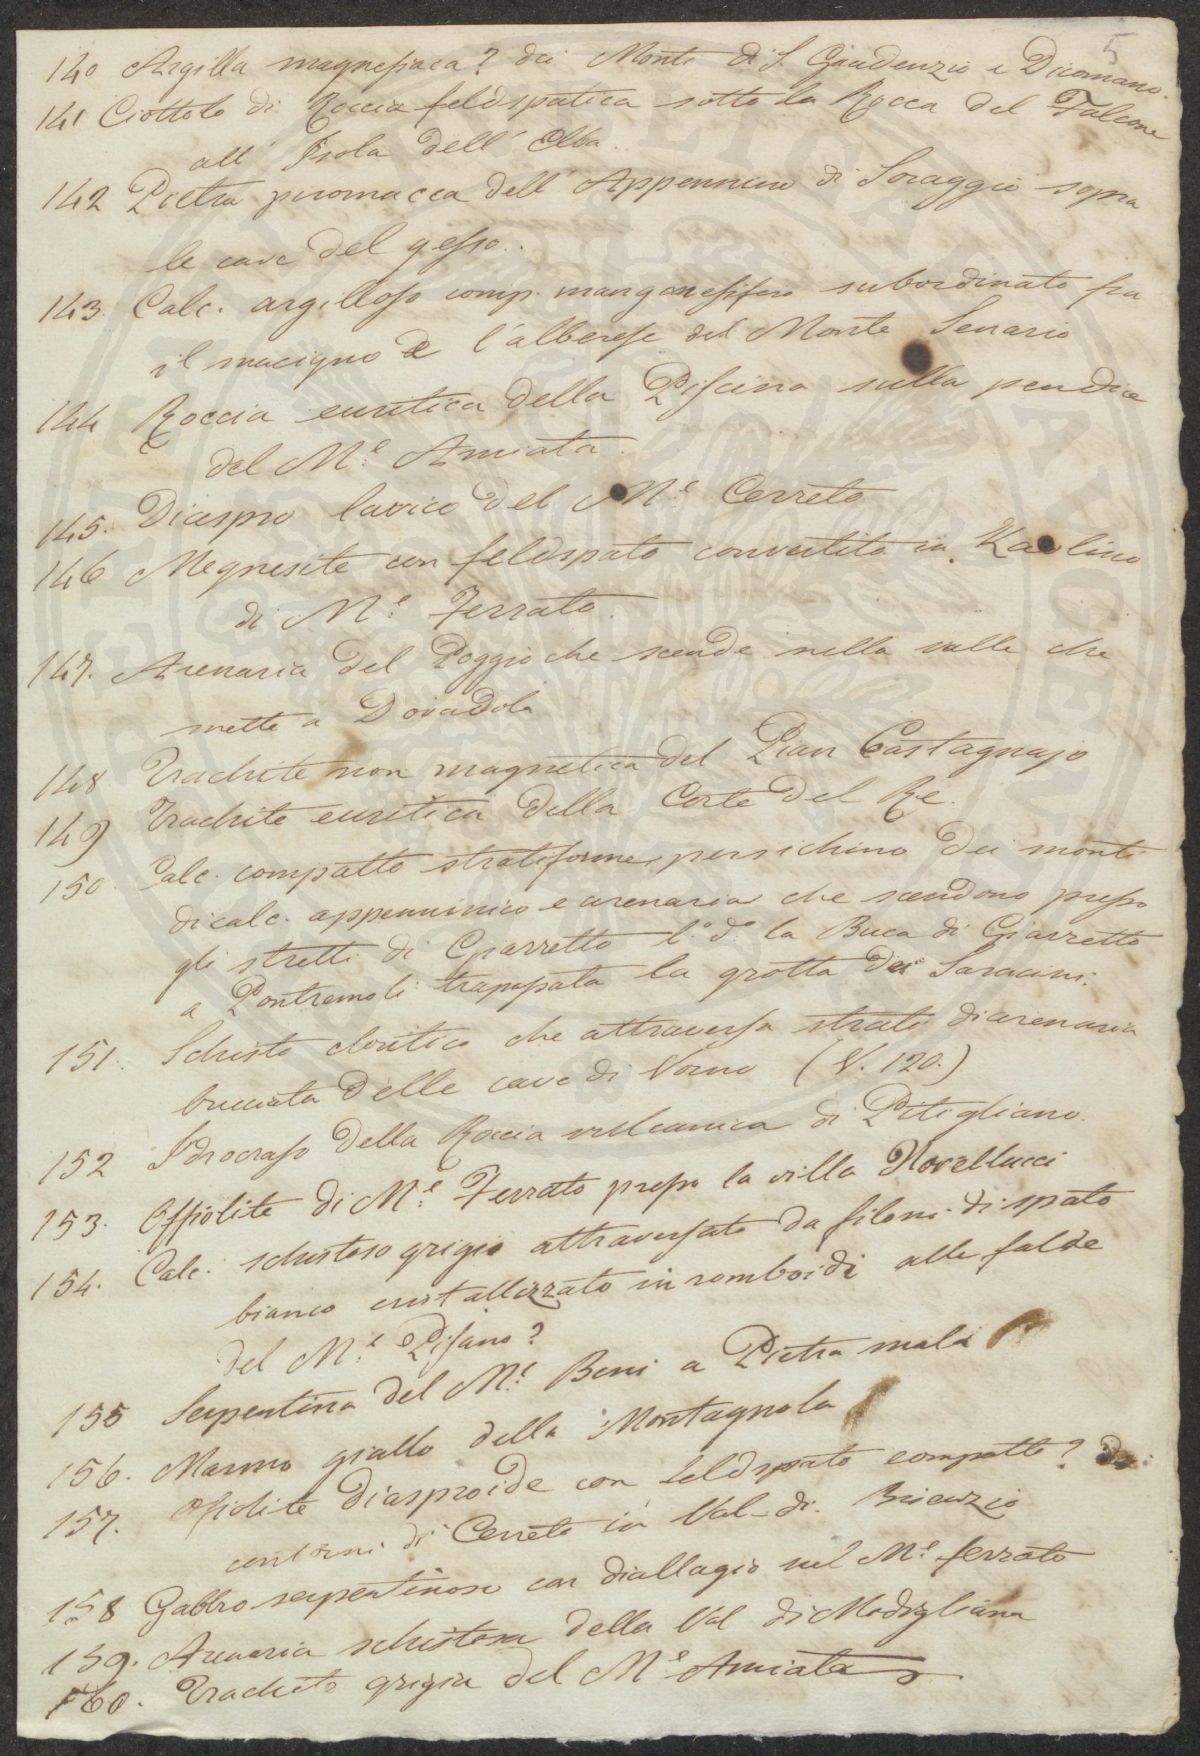 5
140 Argilla magnesiaca? dei Monti di S. Gaudenzio e Dicomano.
141 Ciottolo di Roccia feldspatica sotto la Rocca del Falcone
all' Isola dell' Elba.
142 Pietra piromacca dell' Appennino di Soraggio sopra
le cave del gesso.
143. Calc. argilloso comp. manganesifero subordinato fra
il macigno e l'alberese del Monte Senario
144 Roccia euritica della Piscina sulla pendice
del M.e Amiata.
145. Diaspro lavico del M.e Cerreto
146 Megnesite con feldspato convertito in Kaolino
di M.e Ferrato.
147. Arenaria del Poggio che scende nella valle che
mette a Dovadola
148 Trachite non magnetica del Pian Castagnajo
149 Trachite euritica della Corte del Re.
150 Calc. compatto stratiforme, persichino dei monti
di calc. appenninico e arenaria che scendono presso
gli stretti di Giarretto l.o d.o la Buca di Giarretto
a Pontremoli trapassata la grotta dei Saracini.
151. Schisto cloritico che attraversa strati di arenaria
bucciata delle cave di Vorno (V. 120.)
152 Idrocraso della Roccia vulcanica di Pitigliano.
153. Offiolite di M.e Ferrato presso la villa Novellucci
154. Calc. schistoso grigio attraversato da filoni di spato
bianco cristallizzato in romboidi alle falde
del M.e Pisano?
155 Serpentina del M.e Beni a Pietra mala
156. Marmo giallo della Montagnola
157. Ofiolite diasproide con feldspato compatto? dei
contorni di Cerreto in Val-di Brienzio
158 Gabbro serpentinoso con diallagio nel M.e ferrato
159. Arenaria schistosa della Val di Modigliana
160. Trachite grigia del M.e Amiata